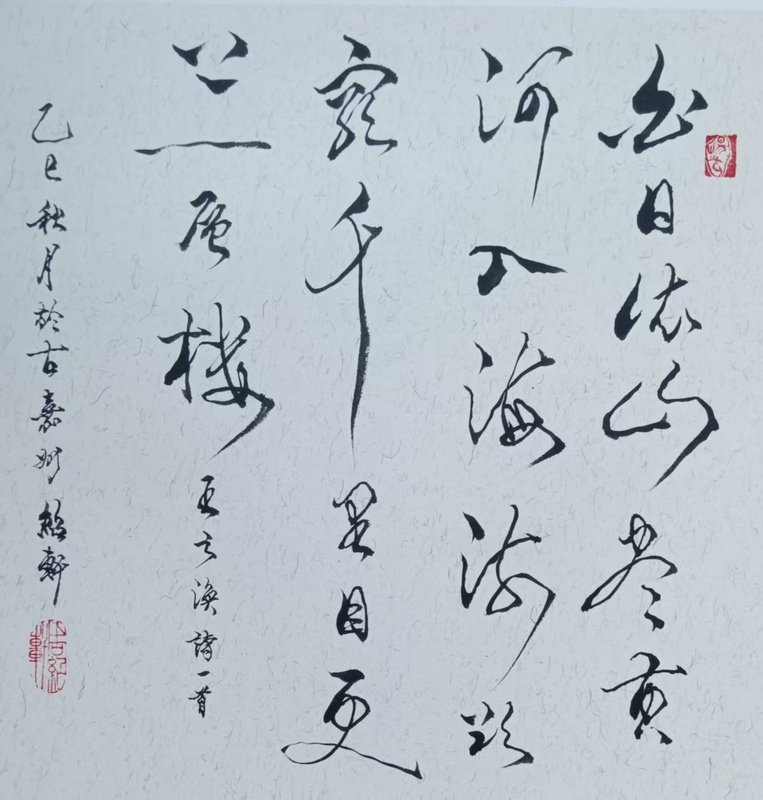 白日依山尽黄
河入海流欲
窮千里目更
上一层楼 王之涣詩一首
乙巳秋月於古嘉州 紹軒